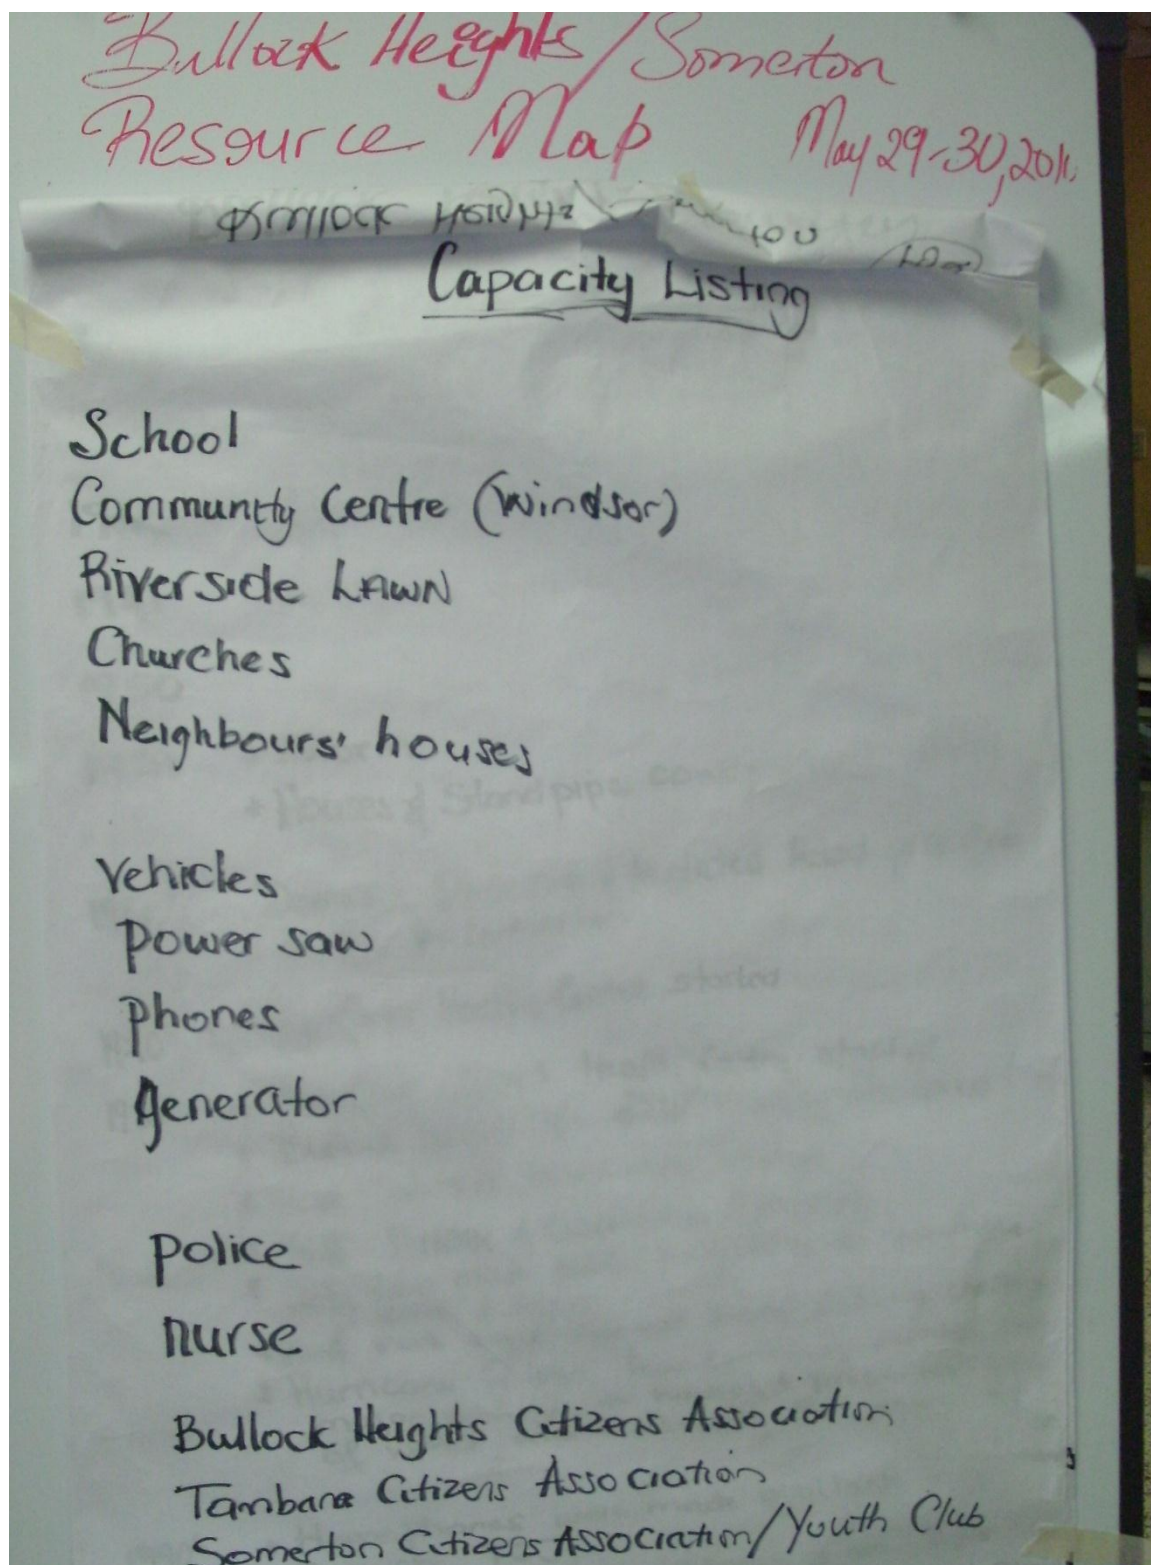 Bullock Heights/Somerton
Resource Map May 29-30, 2011.
Capacity Listing
School
Community Centre (Windsor)
Riverside LAWN
Churches
Neighbours' houses
Vehicles
Power saw
Phones
generator
police
nurse
Bullock Heights Citizens Association
Tambara Citizens Association
Somerton Citizens Association/Youth Club